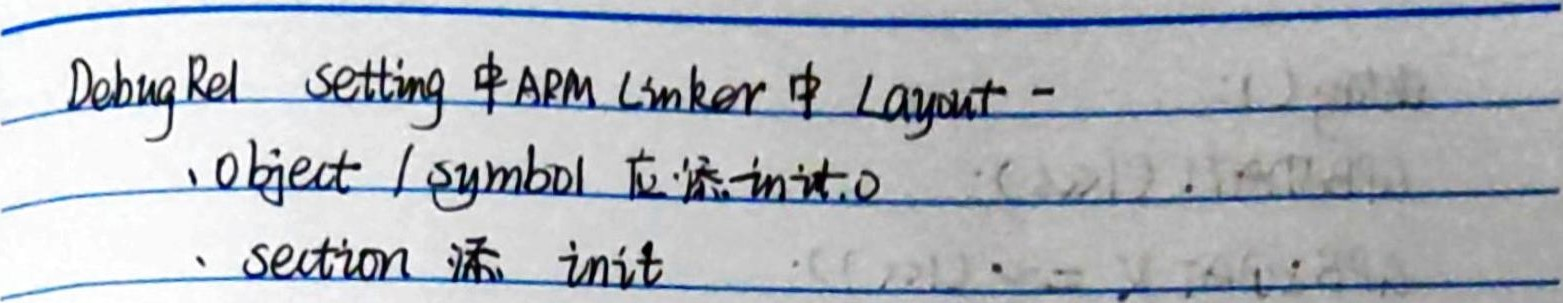 DebugRel setting 中 ARM Linker 中 Layout -
、object / symbol 应添 init.o
、section 添 init